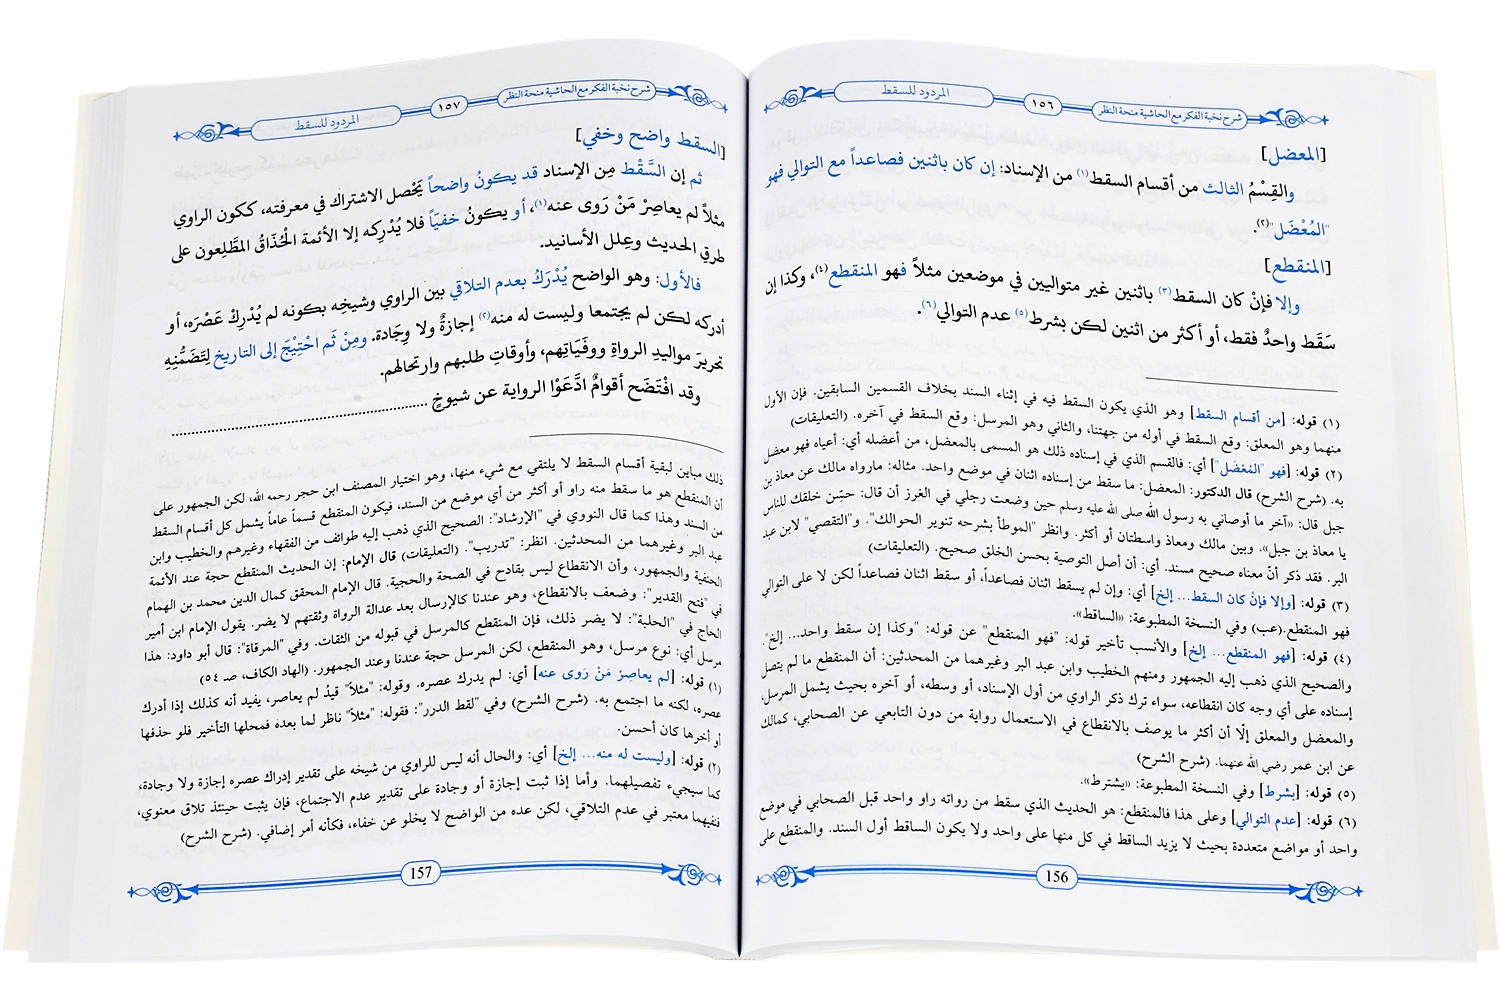 شرح نخبة الفكر مع الحاشية منحة النظر ١٥٦ المردود للسقط
[المعضل]
والقِسْمُ الثالث من أقسام السقط(١) من الإسناد: إن كان باثنين فصاعداً مع التوالي فهو
"المُعْضَل"(٢).
[المنقطع]
وإلا فإنْ كان السقط(٣) باثنين غير متواليين في موضعين مثلاً فهو المنقطع(٤)، وكذا إن
سَقَط واحدٌ فقط، أو أكثر من اثنين لكن بشرط(٥) عدم التوالي(٦).
(١) قوله: [من أقسام السقط] وهو الذي يكون السقط فيه في إثناء السند بخلاف القسمين السابقين. فإن الأول
منهما وهو المعلق: وقع السقط في أوله من جهتنا، والثاني وهو المرسل: وقع السقط في آخره. (التعليقات)
(٢) قوله: [فهو "المُعْضَل"] أي: فالقسم الذي في إسناده ذلك هو المسمى بالمعضل، من أعضله أي: أعياه فهو معضل
به. (شرح الشرح) قال الدكتور: المعضل: ما سقط من إسناده اثنان في موضع واحد. مثاله: مارواه مالك عن معاذ بن
جبل قال: «آخر ما أوصاني به رسول الله صلى الله عليه وسلم حين وضعت رجلي في الغرز أن قال: حسّن خلقك للناس
يا معاذ بن جبل». وبين مالك ومعاذ واسطتان أو أكثر. وانظر "الموطأ بشرحه تنوير الحوالك". و"التقصي" لابن عبد
البر. فقد ذكر أنّ معناه صحيح مسند. أي: أن أصل التوصية بحسن الخلق صحيح. (التعليقات)
(٣) قوله: [وإلا فإنْ كان السقط... إلخ] أي: وإن لم يسقط اثنان فصاعداً، أو سقط اثنان فصاعداً لكن لا على التوالي
فهو المنقطع.(عب) وفي النسخة المطبوعة: «الساقط».
(٤) قوله: [فهو المنقطع... إلخ] والأنسب تأخير قوله: "فهو المنقطع" عن قوله: "وكذا إن سقط واحد... إلخ".
والصحيح الذي ذهب إليه الجمهور ومنهم الخطيب وابن عبد البر وغيرهما من المحدثين: أن المنقطع ما لم يتصل
إسناده على أي وجه كان انقطاعه، سواء ترك ذكر الراوي من أول الإسناد، أو وسطه، أو آخره بحيث يشمل المرسل،
والمعضل والمعلق إلّا أن أكثر ما يوصف بالانقطاع في الاستعمال رواية من دون التابعي عن الصحابي، كمالك
عن ابن عمر رضي الله عنهما. (شرح الشرح)
(٥) قوله: [بشرط] وفي النسخة المطبوعة: «يشترط».
(٦) قوله: [عدم التوالي] وعلى هذا فالمنقطع: هو الحديث الذي سقط من رواته راو واحد قبل الصحابي في موضع
واحد أو مواضع متعددة بحيث لا يزيد الساقط في كل منها على واحد ولا يكون الساقط أول السند. والمنقطع على
156
شرح نخبة الفكر مع الحاشية منحة النظر ١٥٧ المردود للسقط
[السقط واضح وخفي]
ثم إن السَّقْط مِن الإسناد قد يكونُ واضحاً يَحْصل الاشتراك في معرفته، ككون الراوي
مثلاً لم يعاصِرْ مَنْ رَوى عنه(١)، أو يكونُ خفيَاً فلا يُدْرِكه إلا الأئمة الْحُذَاقُ المطَّلِعون على
طرقِ الحديث وعِلل الأسانيد.
فالأول: وهو الواضح يُدْرَكُ بعدم التلاقي بين الراوي وشيخِه بكونه لم يُدْرِكْ عَصْرَه، أو
أدركه لكن لم يجتمعا وليست له منه(٢) إجازةٌ ولا وِجَادة. ومِنْ ثَم احْتِيْجَ إلى التاريخ لِتَضَمُّنِهِ
تحريرَ مواليدِ الرواةِ ووفَيَاتِهِم، وأوقاتِ طلبهم وارتحالهم.
وقد افْتَضَح أقوامٌ ادَّعَوْا الرواية عن شيوخٍ ....................
ذلك مباين لبقية أقسام السقط لا يلتقي مع شيء منها، وهو اختيار المصنف ابن حجر رحمه الله، لكن الجمهور على
أن المنقطع هو ما سقط منه راو أو أكثر من أي موضع من السند، فيكون المنقطع قسماً عاماً يشمل كل أقسام السقط
من السند وهذا كما قال النووي في "الإرشاد": الصحيح الذي ذهب إليه طوائف من الفقهاء وغيرهم والخطيب وابن
عبد البر وغيرهما من المحدثين. انظر: "تدريب". (التعليقات) قال الإمام: إن الحديث المنقطع حجة عند الأئمة
الحنفية والجمهور، وأن الانقطاع ليس بقادح في الصحة والحجية. قال الإمام المحقق كمال الدين محمد بن الهمام
في "فتح القدير": وضعف بالانقطاع، وهو عندنا كالإرسال بعد عدالة الرواة وثقتهم لا يضر. يقول الإمام ابن أمير
الحاج في "الحلبة": لا يضر ذلك، فإن المنقطع كالمرسل في قبوله من الثقات. وفي "المرقاة": قال أبو داود: هذا
مرسل أي: نوع مرسل، وهو المنقطع، لكن المرسل حجة عندنا وعند الجمهور. (الهاد الكاف، صـ ٥٤)
(١) قوله: [لم يعاصِرْ مَنْ رَوى عنه] أي: لم يدرك عصره. وقوله: "مثلاً" قيدُ لم يعاصر، يفيد أنه كذلك إذا أدرك
عصره، لكنه ما اجتمع به. (شرح الشرح) وفي "لقط الدرر": فقوله: "مثلاً" ناظر لما بعده فمحلها التأخير فلو حذفها
أو أخرها كان أحسن.
(٢) قوله: [وليست له منه... إلخ] أي: والحال أنه ليس للراوي من شيخه على تقدير إدراك عصره إجازة ولا وجادة،
كما سيجيء تفصيلهما. وأما إذا ثبت إجازة أو وجادة على تقدير عدم الاجتماع، فإن يثبت حينئذ تلاق معنوي،
فنفيهما معتبر في عدم التلاقي، لكن عده من الواضح لا يخلو عن خفاء، فكأنه أمر إضافي. (شرح الشرح)
157